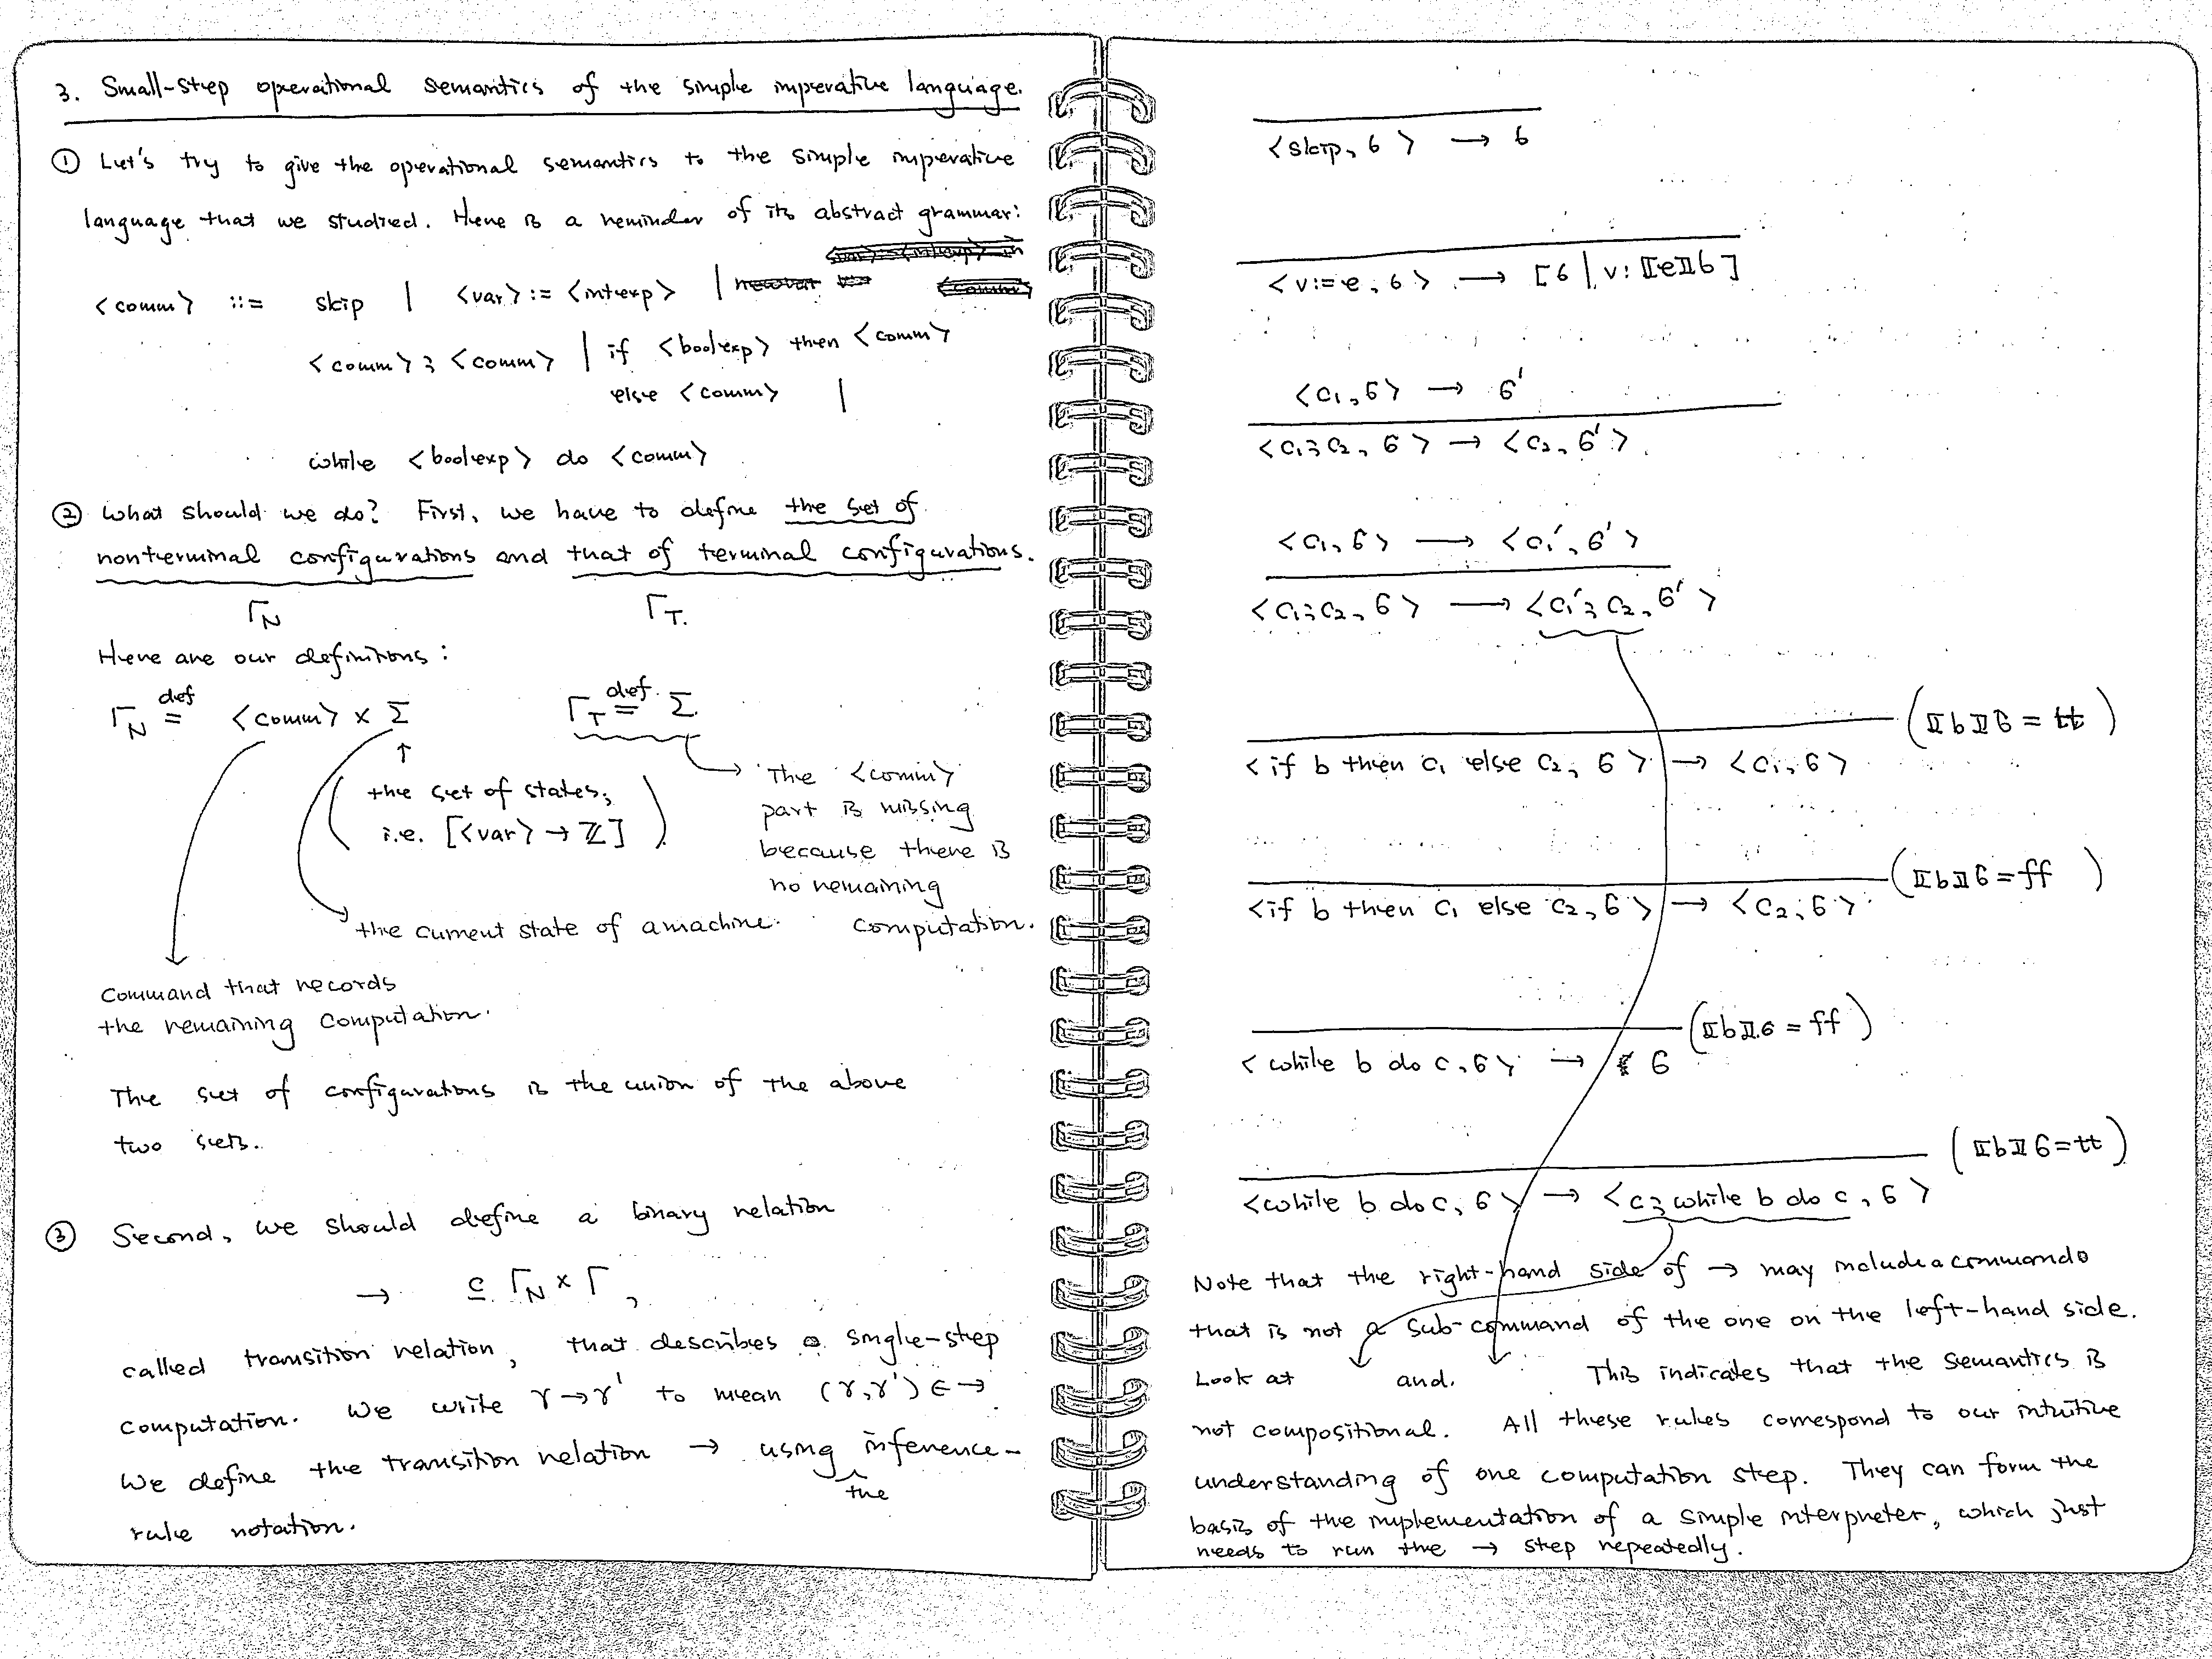 3. Small-step operational semantics of the simple imperative language.
① Let's try to give the operational semantics to the simple imperative
language that we studied. Here is a reminder of its abstract grammar:
<comm> ::= skip | <var> := <intexp> |
<comm> ; <comm> | if <boolexp> then <comm>
else <comm> |
while <boolexp> do <comm>
② What should we do? First, we have to define the set of
nonterminal configurations and that of terminal configurations.
Γ_N Γ_T.
Here are our definitions:
Γ_N def= <comm> × Σ Γ_T def= Σ
↑
(the set of states,
i.e. [<var> → ℤ])
The <comm>
part is missing
because there is
no remaining
computation.
the current state of a machine.
Command that records
the remaining computation.
The set of configurations is the union of the above
two sets.
③ Second, we should define a binary relation
→ ⊆ Γ_N × Γ,
called transition relation, that describes a single-step
computation. We write γ→γ' to mean (γ,γ') ∈ →
We define the transition relation → using the inference-
rule notation.
<skip, σ> → σ
<v:=e, σ> → [σ | v: ⟦e⟧σ]
<c₁,σ> → σ'
<c₁;c₂, σ> → <c₂, σ'>.
<c₁,σ> → <c₁', σ'>
<c₁;c₂, σ> → <c₁';c₂, σ'>
(⟦b⟧σ = tt)
<if b then c₁ else c₂, σ> → <c₁,σ>
(⟦b⟧σ = ff)
<if b then c₁ else c₂, σ> → <c₂,σ>
(⟦b⟧σ = ff)
<while b do c, σ> → σ
(⟦b⟧σ = tt)
<while b do c, σ> → <c; while b do c, σ>
Note that the right-hand side of → may include a command
that is not a sub-command of the one on the left-hand side.
Look at and. This indicates that the semantics is
not compositional. All these rules correspond to our intuitive
understanding of one computation step. They can form the
basis of the implementation of a simple interpreter, which just
needs to run the → step repeatedly.